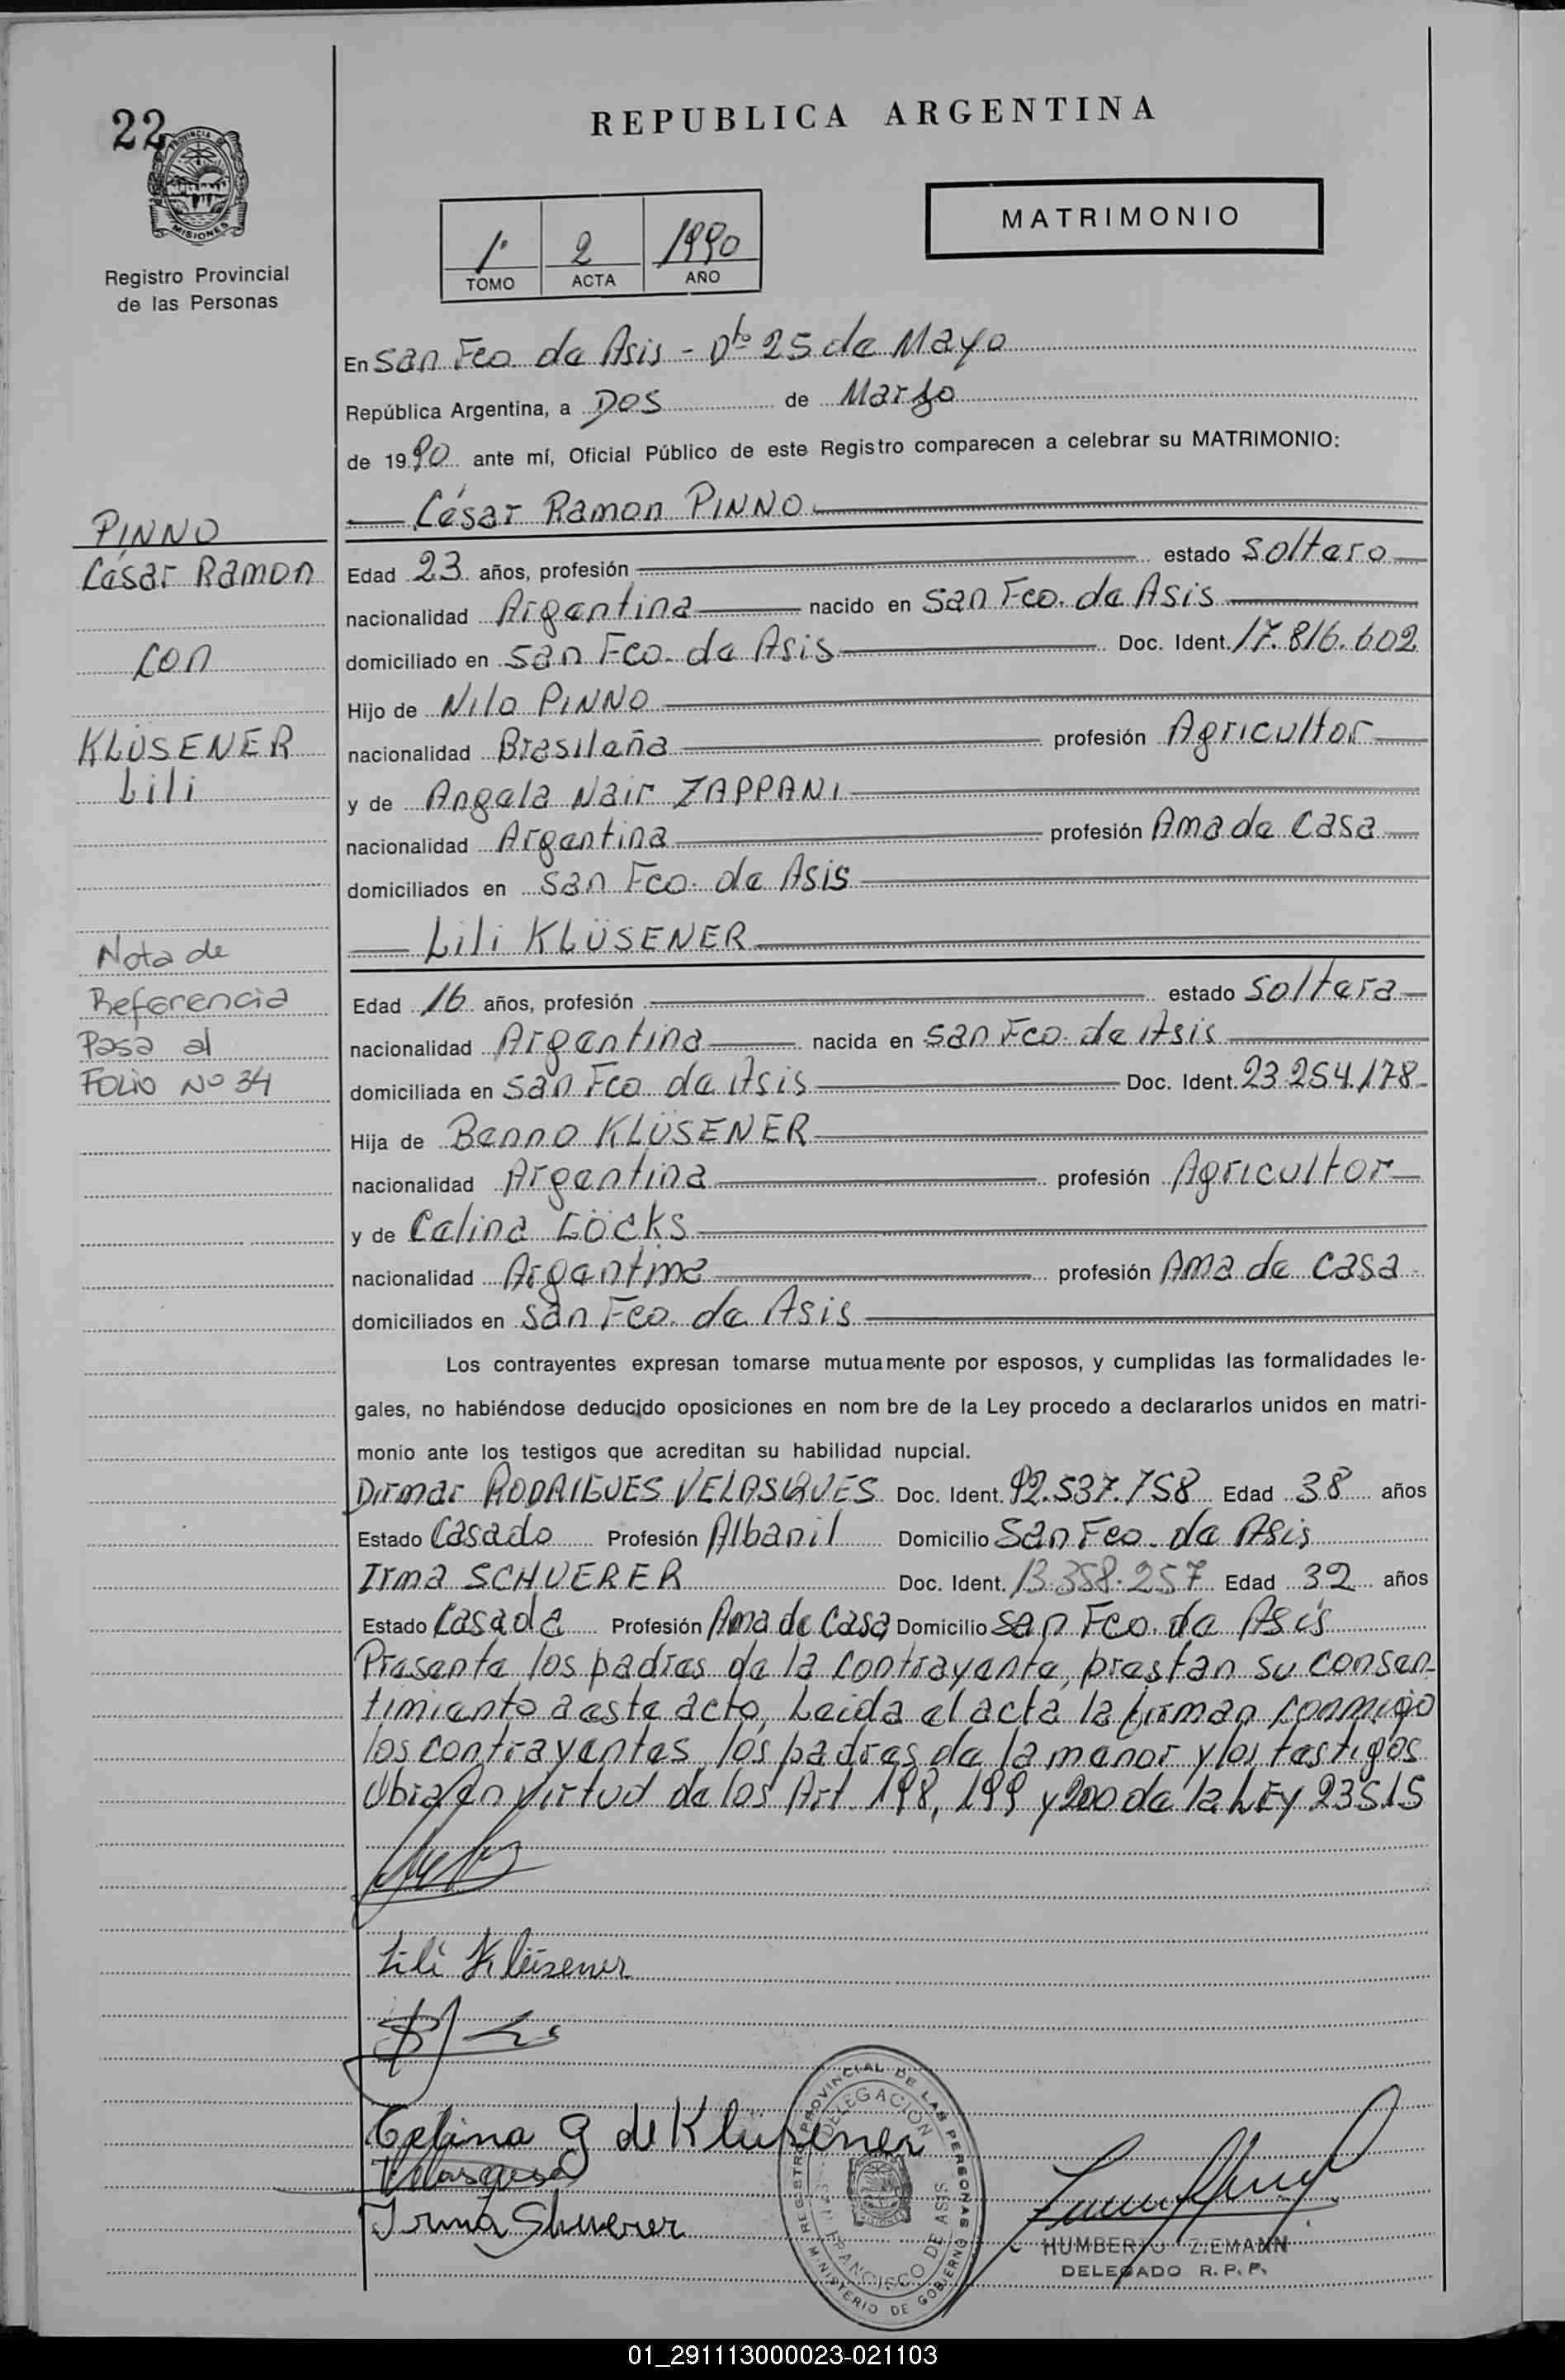 22
PROVINCIA DE
MISIONES
Registro Provincial
de las Personas
REPUBLICA ARGENTINA
1º 2 1990
TOMO ACTA AÑO
MATRIMONIO
En San Fco. de Asis - Dto 25 de Mayo
República Argentina, a Dos de Marzo
de 1990 ante mí, Oficial Público de este Registro comparecen a celebrar su MATRIMONIO:
César Ramon PINNO
Edad 23 años, profesión estado Soltero
nacionalidad Argentina nacido en San Fco. de Asis
domiciliado en San Fco. de Asis Doc. Ident. 17.816.602
Hijo de Nilo PINNO
nacionalidad Brasileña profesión Agricultor
y de Angela Nair ZAPPANI
nacionalidad Argentina profesión Ama de Casa
domiciliados en San Fco. de Asis
Lili KLÜSENER
Edad 16 años, profesión estado Soltera
nacionalidad Argentina nacida en San Fco. de Asis
domiciliada en San Fco de Asis Doc. Ident. 23.254.178
Hija de Benno KLÜSENER
nacionalidad Argentina profesión Agricultor
y de Celina
nacionalidad Argentina profesión Ama de Casa
domiciliados en San Fco. de Asis
Los contrayentes expresan tomarse mutuamente por esposos, y cumplidas las formalidades le-
gales, no habiéndose deducido oposiciones en nom bre de la Ley procedo a declararlos unidos en matri-
monio ante los testigos que acreditan su habilidad nupcial.
Dirmar RODRIGUES VELASQUES Doc. Ident. 92.537.758 Edad 38 años
Estado Casado Profesión Albanil Domicilio San Fco. de Asis
Irma SCHUERER Doc. Ident. 13.358.257 Edad 32 años
Estado Casada Profesión Ama de Casa Domicilio San Fco. de Asis
Presente los padres de la contrayente, prestan su consen-
timiento a este acto, Leida el acta la firman conmigo
los contrayentes, los padres de la menor y los testigos
Ubia en virtud de los Art. 198, 199 y 200 de la LEY 23515
PINNO
César Ramon
con
KLÜSENER
Lili
Nota de
Referencia
Pasa al
FOLIO Nº 34
Lili Klüsener
Celina G de Klüsener
Velasques
Irma Shuerer
REGISTRO PROVINCIAL DE LAS PERSONAS
DELEGACIÓN
FRANCISCO DE ASIS
MINISTERIO DE GOBIERNO
HUMBERTO ZIEMANN
DELEGADO R. P. P.
01_291113000023-021103